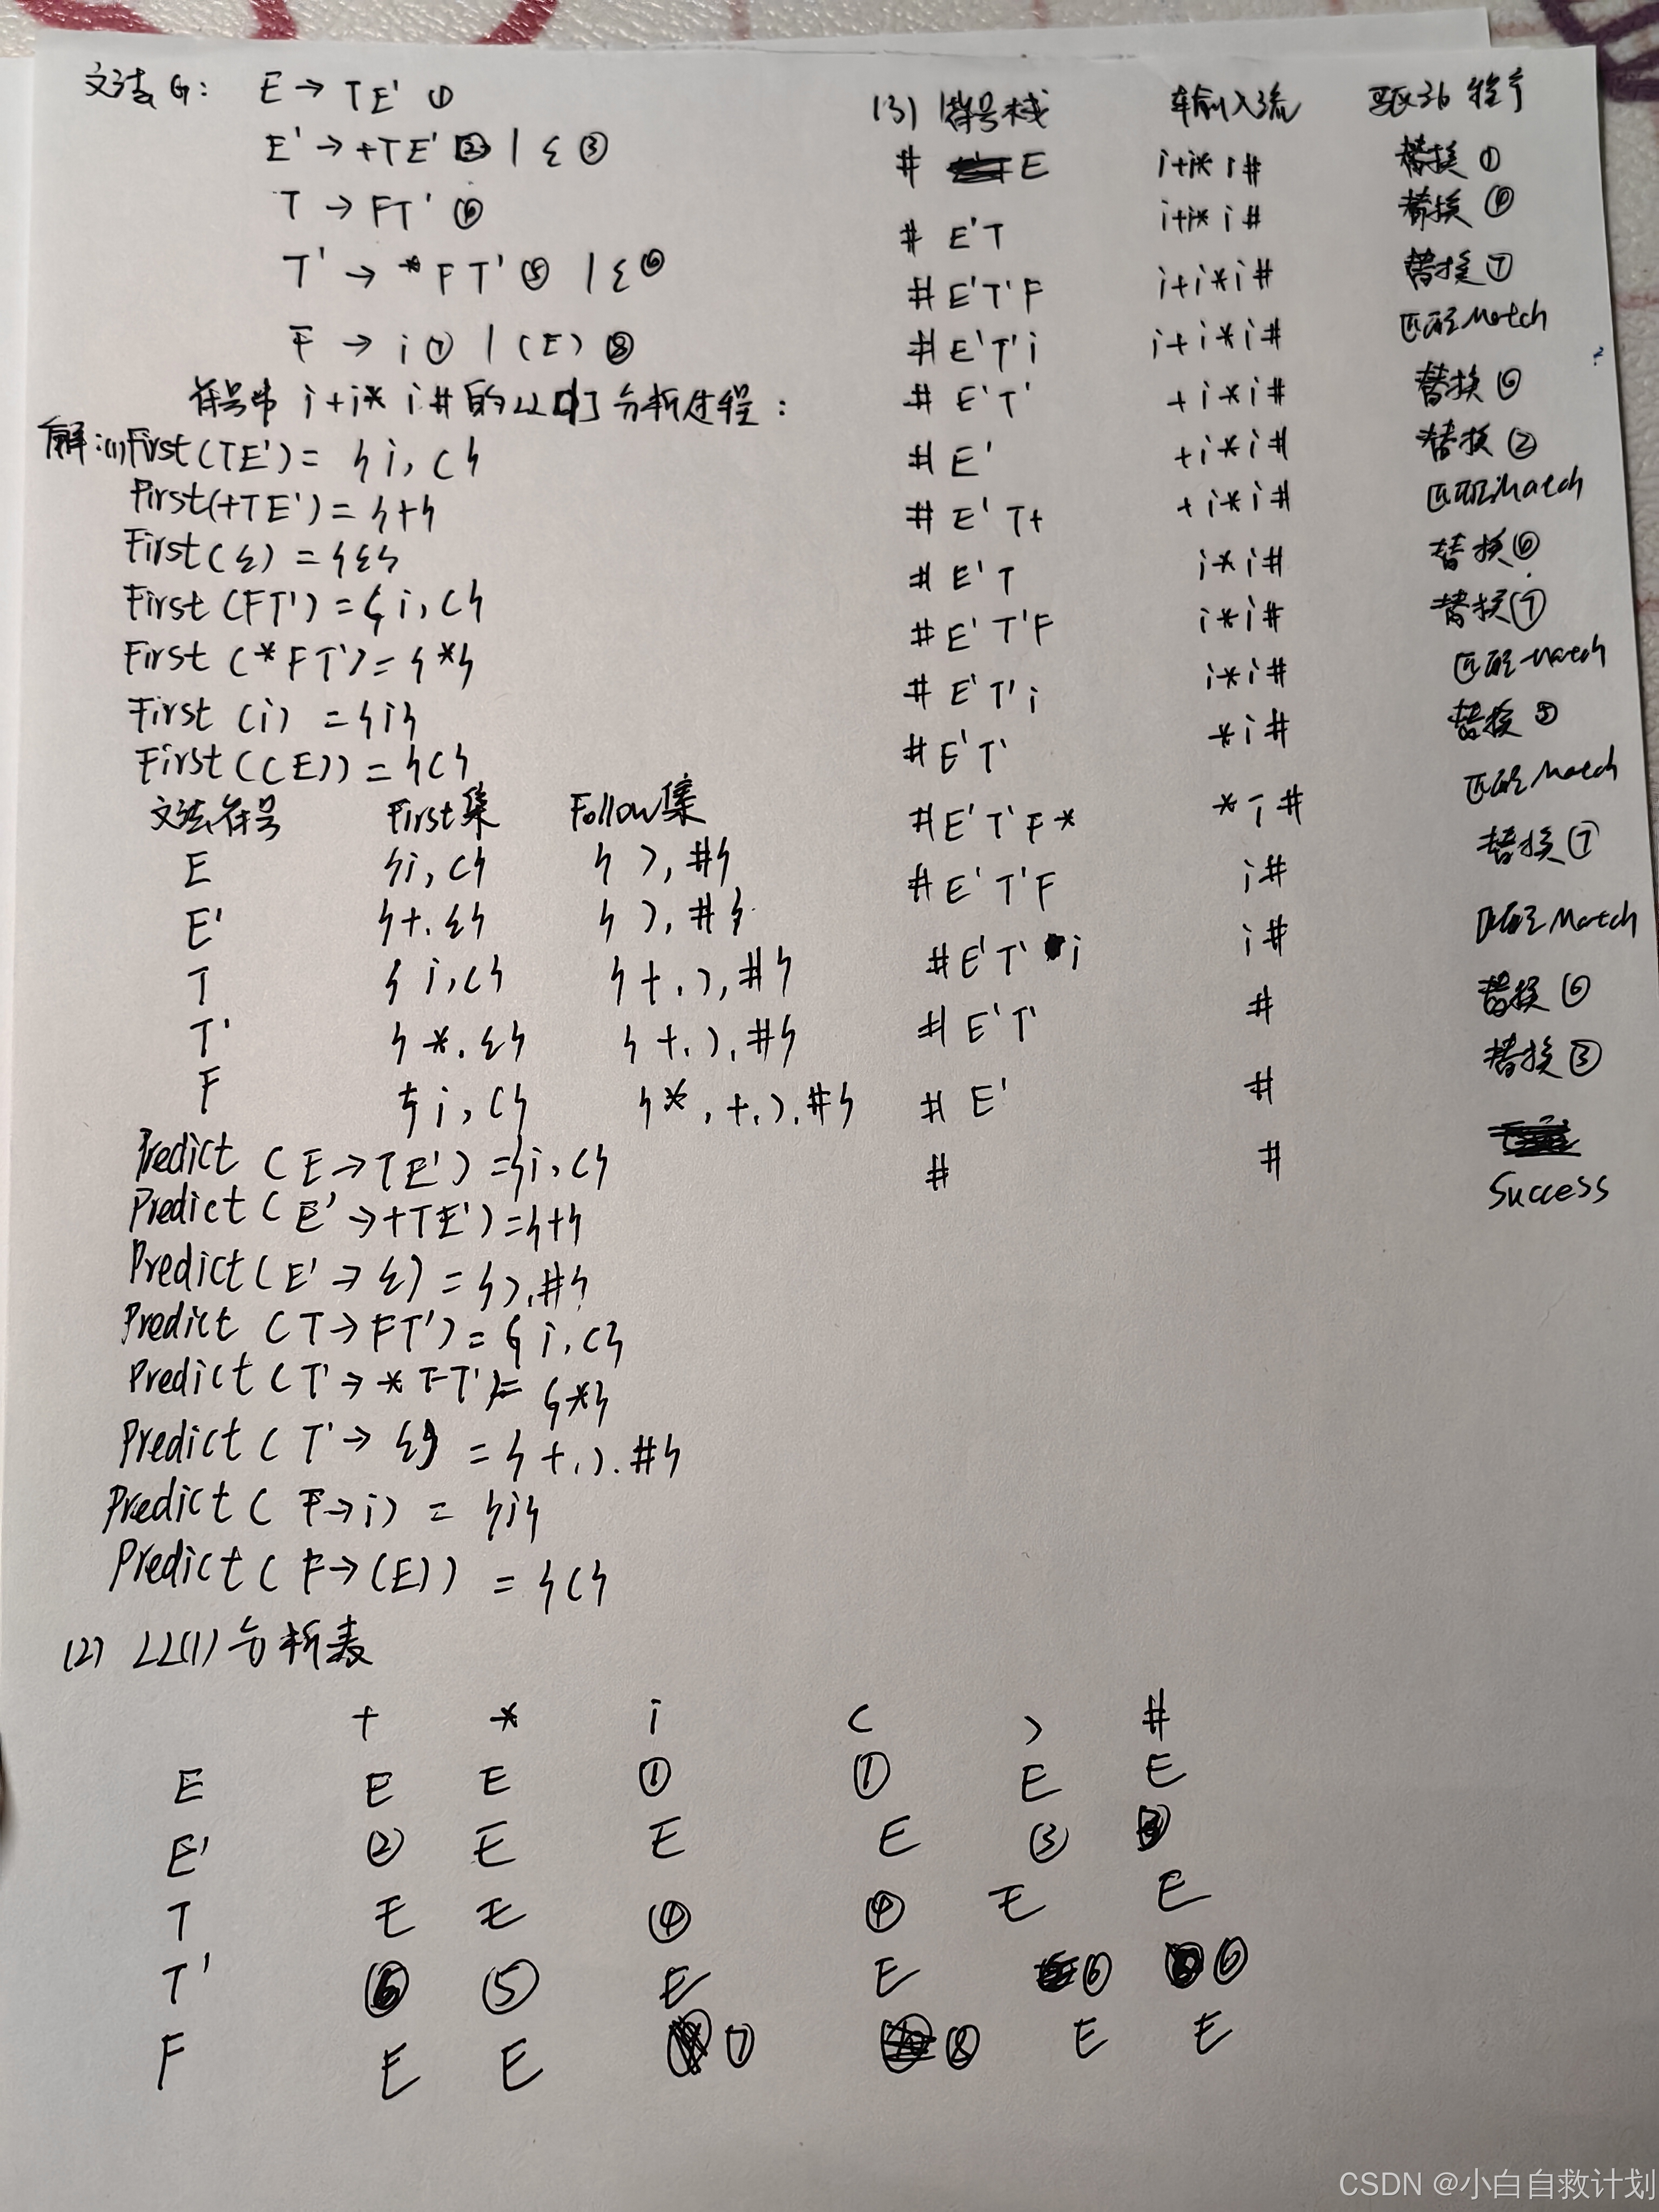 文法G: E → TE' ①
E' → +TE' ② | ε ③
T → FT' ④
T' → *FT' ⑤ | ε ⑥
F → i ⑦ | (E) ⑧
符号串 i+i*i# 的LL(1)分析过程:
解:(1)First(TE') = {i, (}
First(+TE') = {+}
First(ε) = {ε}
First(FT') = {i, (}
First(*FT') = {*}
First(i) = {i}
First((E)) = {(}
文法符号 First集 Follow集
E {i, (} {), #}
E' {+, ε} {), #}
T {i, (} {+, ), #}
T' {*, ε} {+, ), #}
F {i, (} {*, +, ), #}
Predict (E → TE') = {i, (}
Predict (E' → +TE') = {+}
Predict (E' → ε) = {), #}
Predict (T → FT') = {i, (}
Predict (T' → *FT') = {*}
Predict (T' → ε) = {+, ), #}
Predict (F → i) = {i}
Predict (F → (E)) = {(}
(2) LL(1) 分析表
+ * i ( ) #
E E E ① ① E E
E' ② E E E ③ ③
T E E ④ ④ E E
T' ⑥ ⑤ E E ⑥ ⑥
F E E ⑦ ⑧ E E
(3) 符号栈 输入流 驱动程序
# E i+i*i# 替换①
# E'T i+i*i# 替换④
# E'T'F i+i*i# 替换⑦
# E'T'i i+i*i# 匹配Match
# E'T' +i*i# 替换⑥
# E' +i*i# 替换②
# E'T+ +i*i# 匹配Match
# E'T i*i# 替换④
# E'T'F i*i# 替换⑦
# E'T'i i*i# 匹配Match
# E'T' *i# 替换⑤
# E'T'F* *i# 匹配Match
# E'T'F i# 替换⑦
# E'T'i i# 匹配Match
# E'T' # 替换⑥
# E' # 替换③
# # Success
CSDN @小白自救计划